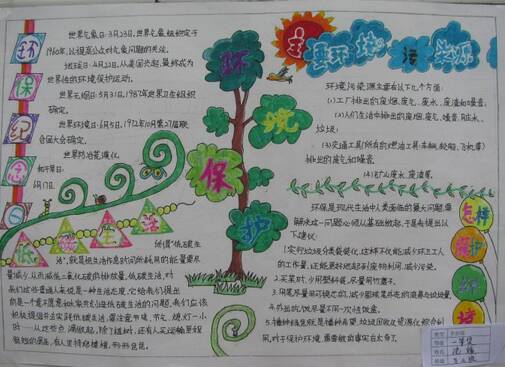 环保纪念日
世界气象日:3月23日,世界气象组织定于
1960年,以提高公众对气象问题的关注。
地球日:4月22日,从美国兴起,最终成为
世界性的环境保护运动。
世界无烟日:5月31日,1987年世界卫生组织
确定。
世界环境日:6月5日,1972年10月第27届联
合国大会确定。
世界防治荒漠化
和干旱日:
6月17日
低碳生活
所谓"低碳生
活",就是把生活作息时间所耗用的能量要尽
量减少,从而减低二氧化碳的排放量。低碳生活,对
我们这些普通人来说是一种生活态度,它给我们提出
的是一个愿不愿意和大家共创造低碳生活的问题。我们应该
积极提倡并去实践低碳生活,要注意节电、节气、熄灯一小
时……从这些点滴做起。除了植树,还有人买运输里程
很短的商品,有人坚持爬楼梯,形形色色。
环境保护
主要环境污染源
环境污染源主要有以下几个方面:
(1)工厂排出的废烟、废气、废水、废渣和噪音。
(2)人们生活中排出的废烟、废气、噪音、脏水、
垃圾;
(3)交通工具(所有的燃油工具:车辆、轮船、飞机等)
排出的废气和噪音。
(4)矿山废水、废渣等。
环保是现代生活中人类面临的重大问题,要
解决这一问题必须从基础做起,于是我提出以
下建议:
1.实行垃圾分类袋装化。这样不仅能减少环卫工人
的工作量,还能更好地起到废物利用,减少污染。
2.买菜时,少用塑料袋,尽量用竹篮子。
4.外出吃饭尽量不用一次性饭盒。
怎样保护环境